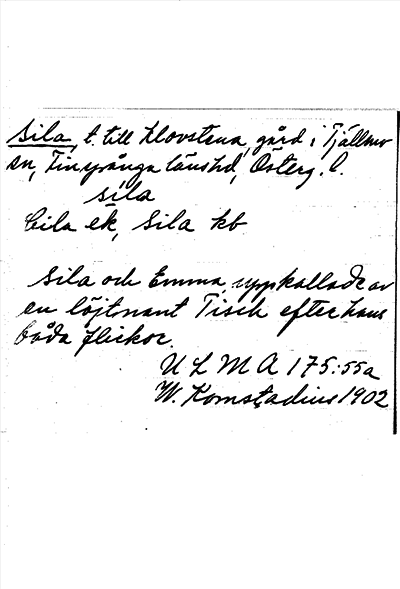 Sila, t. till Klovstena, gård i Tjällmo
sn, Finspånga länshd, Österg. l.
sila
Cila ek, Sila kb
Sila och Emma, uppkallade av
en löjtnant Tisch efter hans
båda flickor.
U L M A 175:55a
W. Komstadius 1902